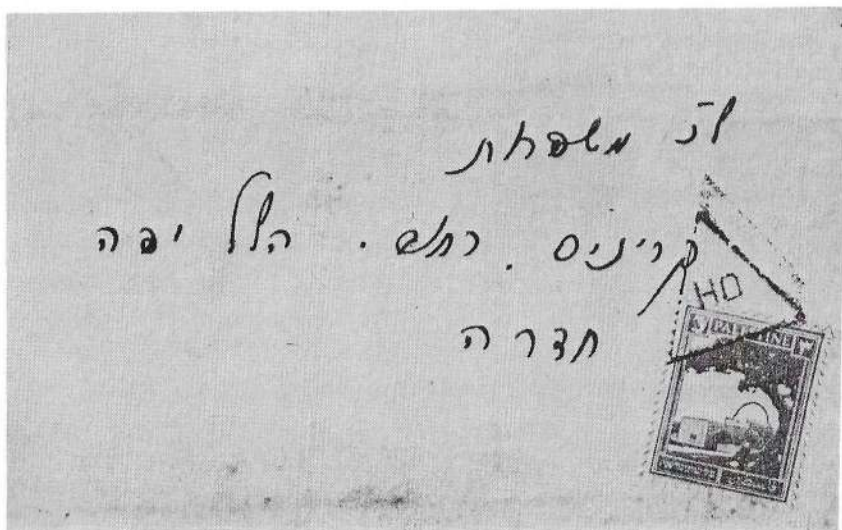 לכ' משפחת
קרינס. רחוב. הלל יפה
חדרה
HD
PALESTINE